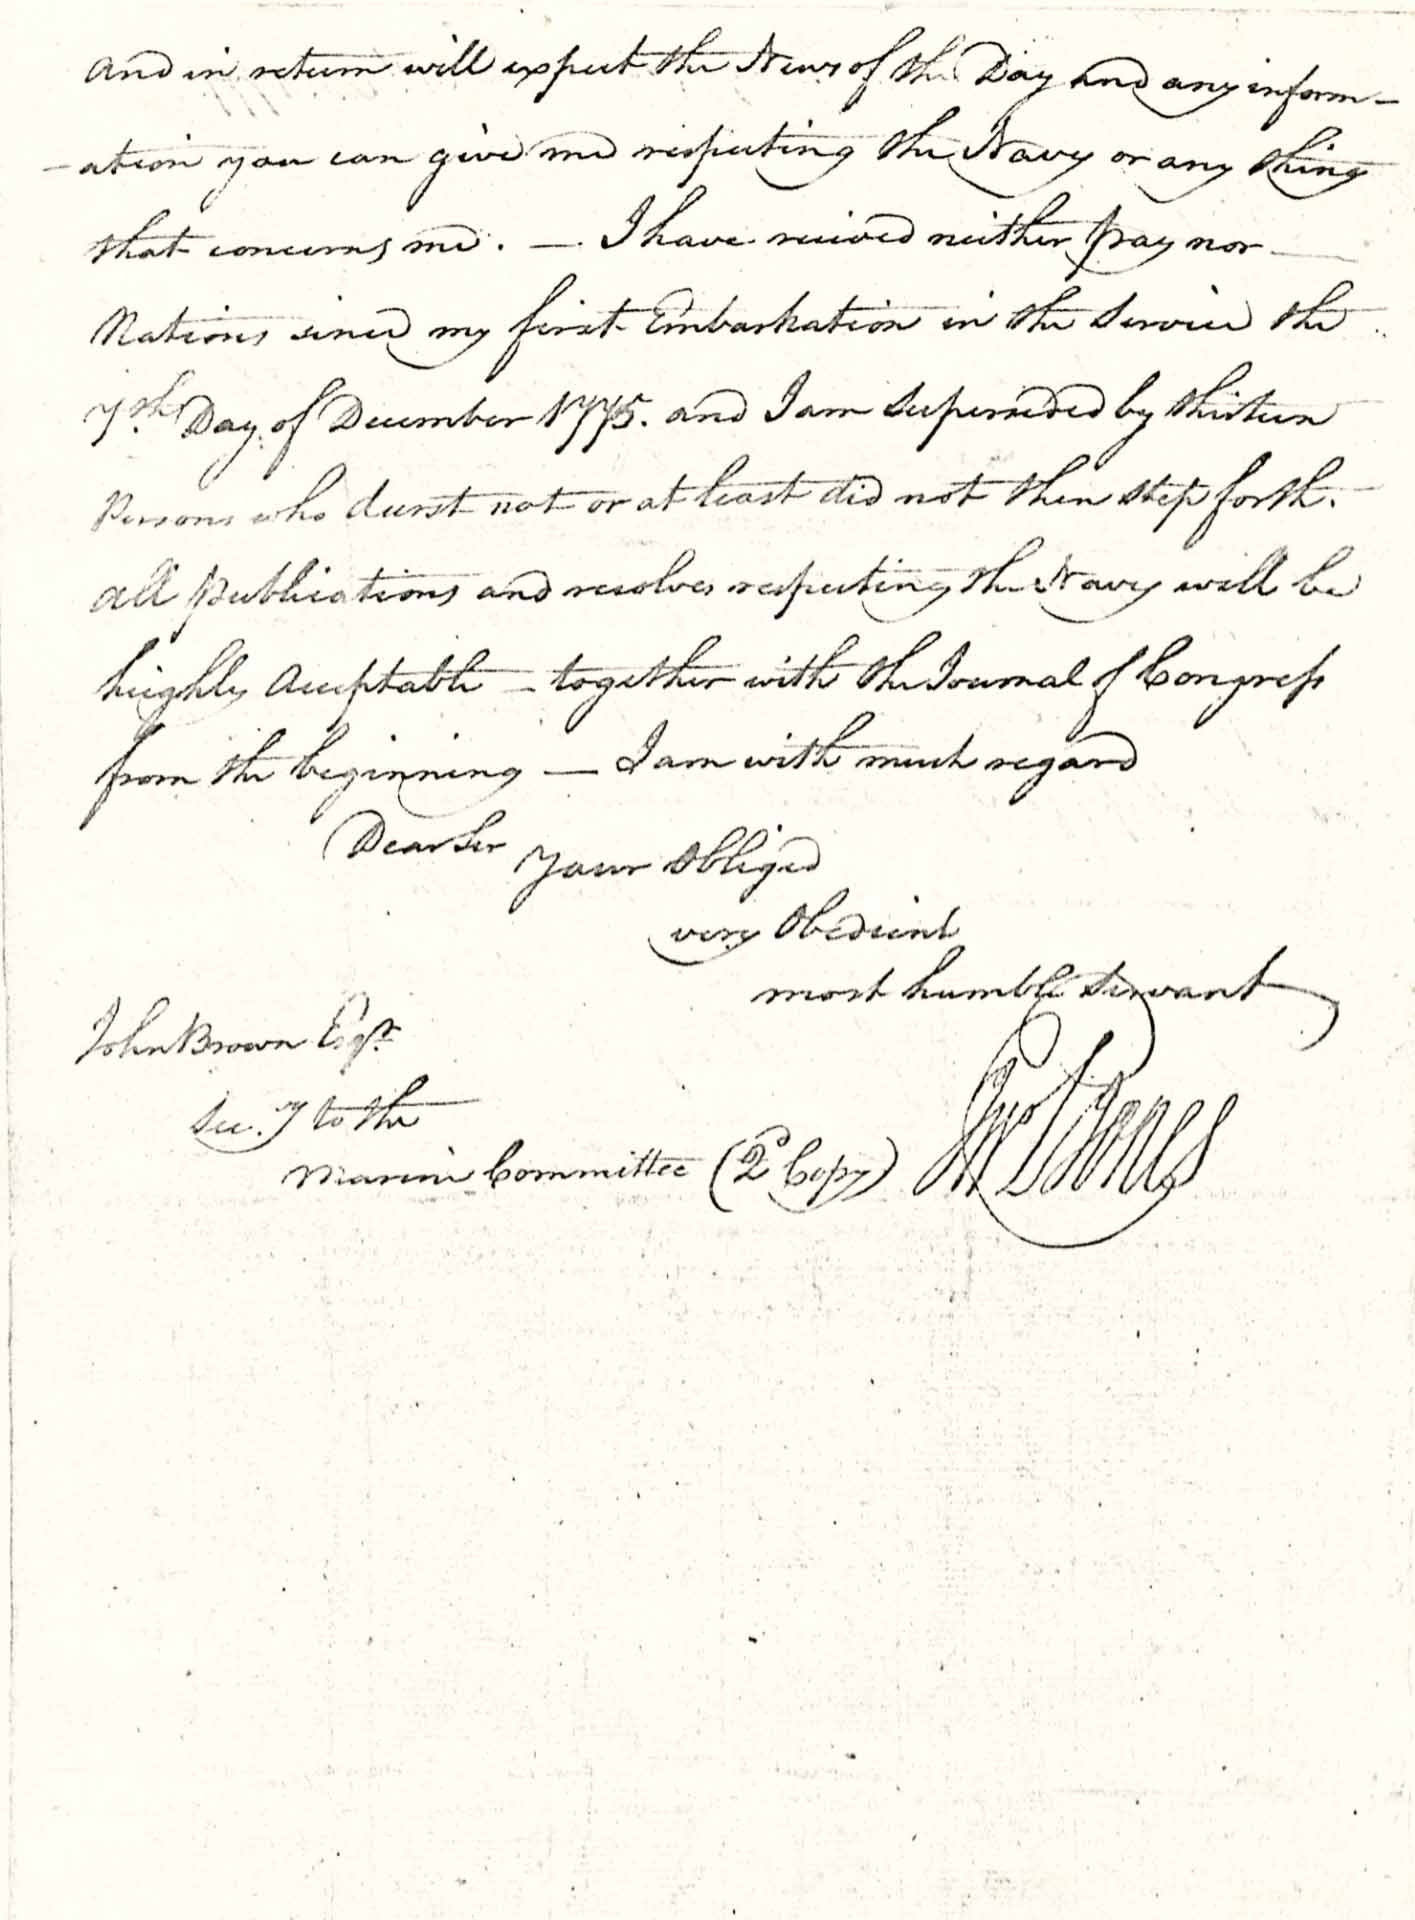 and in return will expect the News of the Day and any inform-
-ation you can give me respecting the Navy or any thing
that concerns me. — I have recieved neither Pay nor
Rations since my first Embarkation in the Service the
7th Day of December 1775. and I am superseded by thirteen
Persons who durst not or at least did not then step forth.
all Publications and resolves respecting the Navy will be
highly Acceptable — together with the Journal of Congress
from the beginning — I am with much regard
Dear Sir
Your Obliged
very Obedient
most humble Servant
John Brown Esqr.
Sec.ry to the
Marine Committee (2d Copy) Jno P Jones